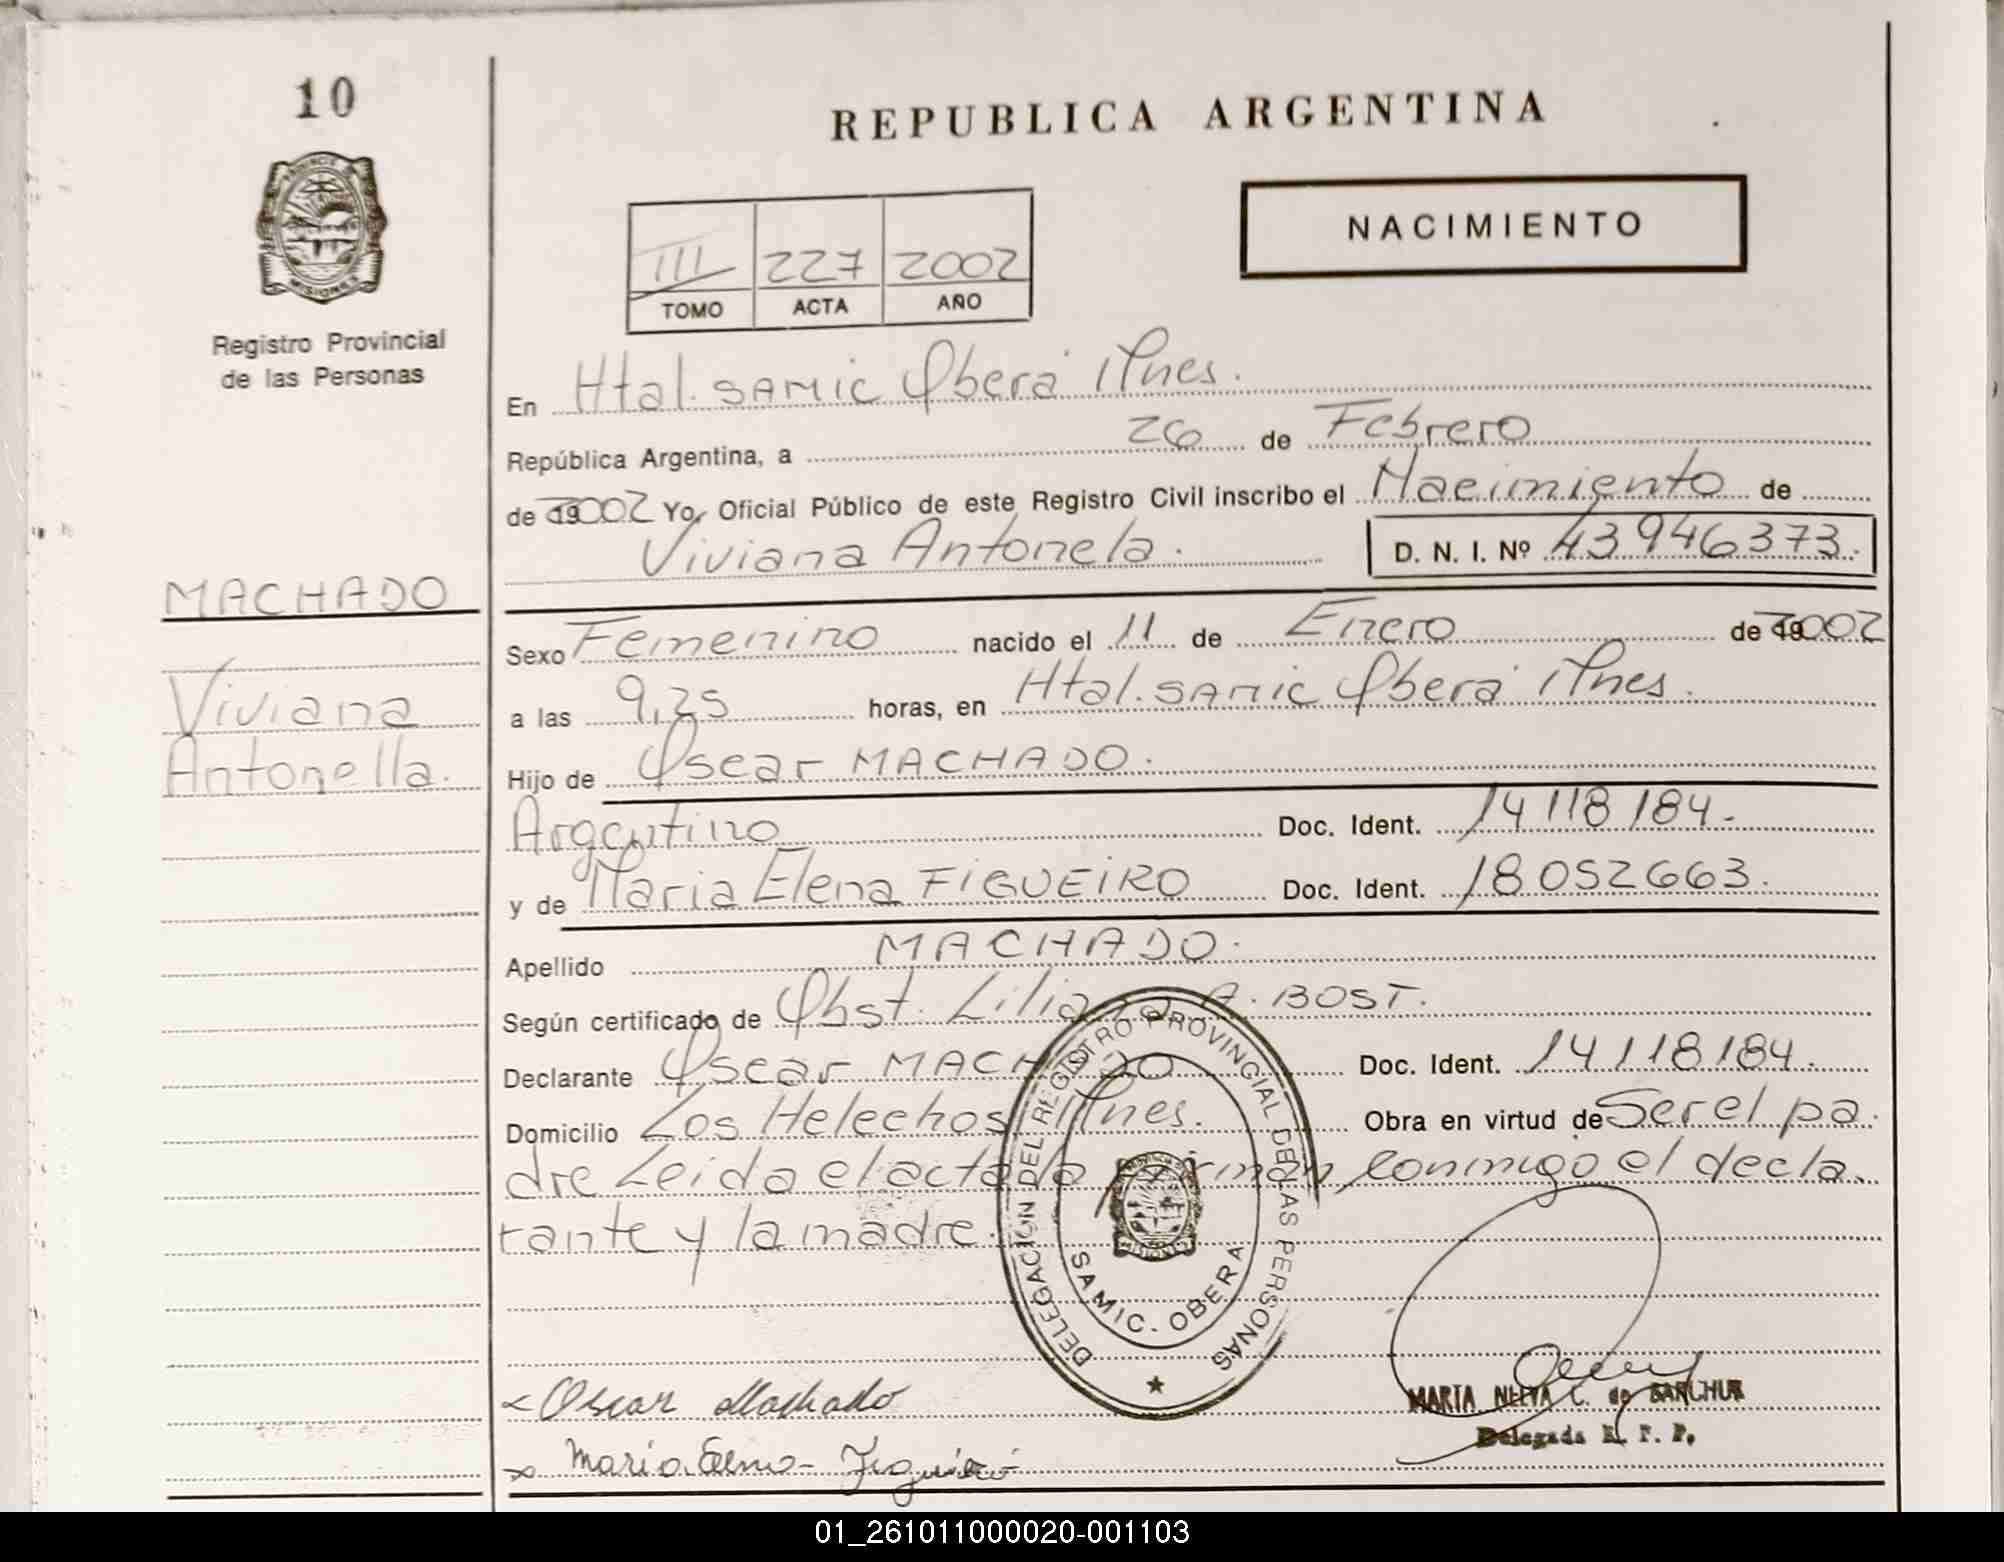 10
REPUBLICA ARGENTINA
NACIMIENTO
III 227 2002
TOMO ACTA AÑO
Registro Provincial
de las Personas
En Htal. SAMIC Oberá Mnes.
República Argentina, a 26 de Febrero
de 2002 Yo, Oficial Público de este Registro Civil inscribo el Nacimiento de
Viviana Antonela. D. N. I. Nº 43946373.
MACHADO
Viviana
Antonella.
Sexo Femenino nacido el 11 de Enero de 2002
a las 9,25 horas, en Htal. SAMIC Oberá Mnes.
Hijo de Oscar MACHADO.
Argentino Doc. Ident. 14118184.
y de Maria Elena FIGUEIRO Doc. Ident. 18052663.
Apellido MACHADO.
Según certificado de Obst. Liliana A. BOST.
Declarante Oscar MACHADO Doc. Ident. 14118184.
Domicilio Los Helechos Mnes. Obra en virtud de Ser el pa
dre Leida el acta la firman conmigo el decla
rante y la madre.
DELEGACION DEL REGISTRO PROVINCIAL DE LAS PERSONAS
PROVINCIA DE
MISIONES
SAMIC. OBERA
Oscar Machado
Maria Elena Figueiro
MARIA NELVA C. de SANCHUK
Delegada R. P. P.
01_261011000020-001103